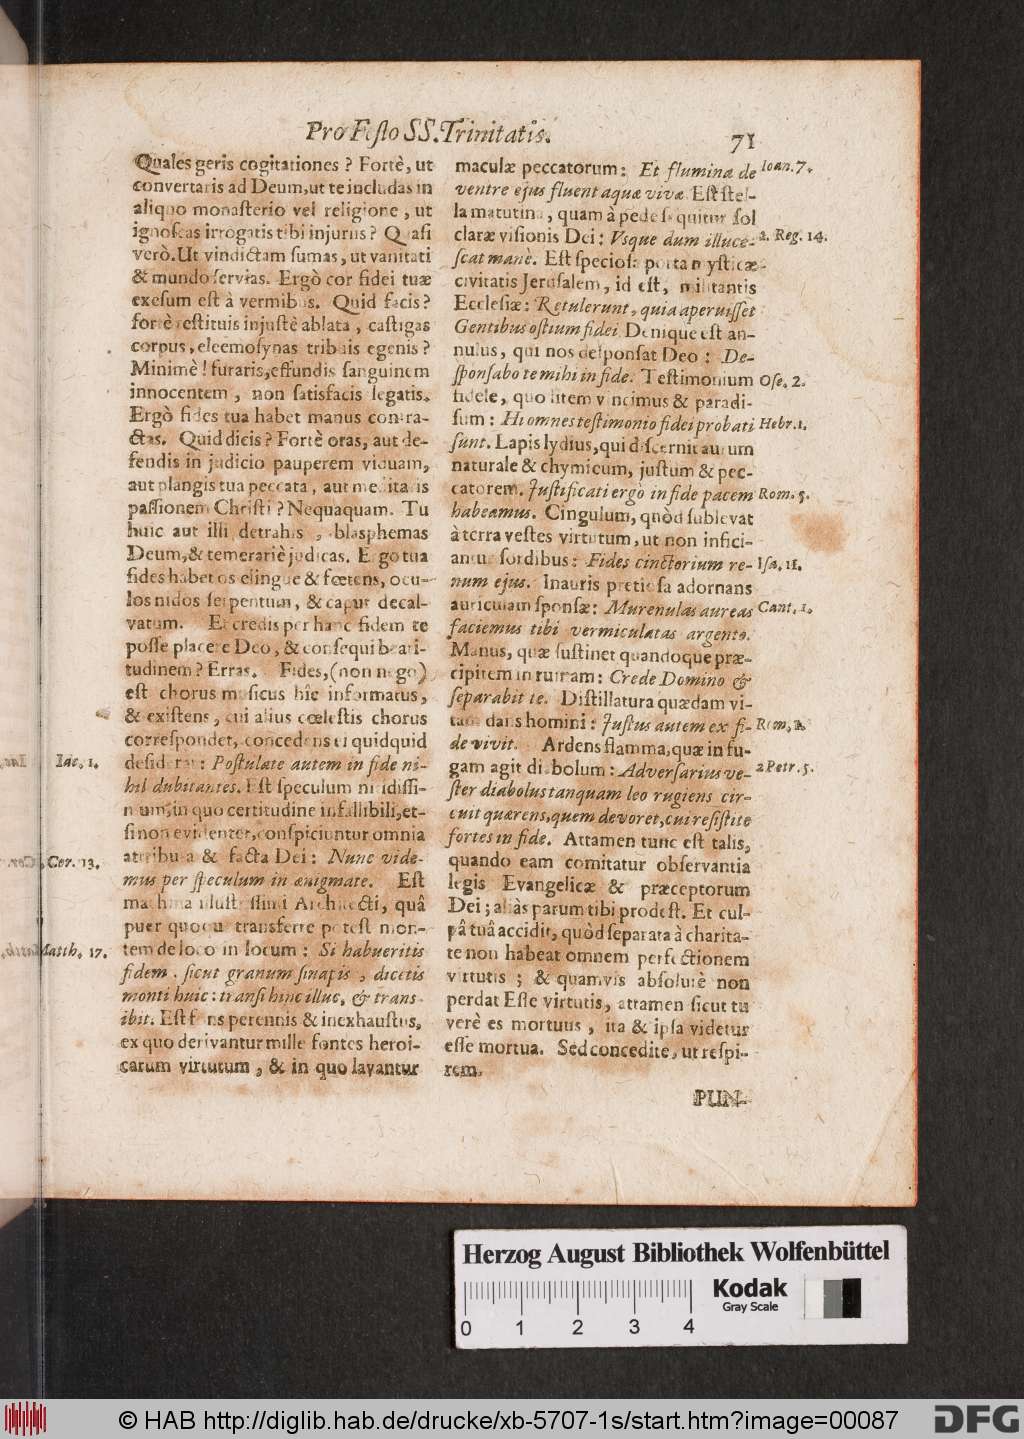 Pro Festo SS. Trinitatis.
71
Quales geris cogitationes? Fortè, ut
convertaris ad Deum, ut te includas in
aliquo monasterio vel religione, ut
ignoscas irrogatis tibi injuriis? Quasi
verò. Ut vindictam sumas, ut vanitati
& mundo servias. Ergò cor fidei tuæ
exesum est à vermibus. Quid facis?
fortè restituis injustè ablata, castigas
corpus, eleemosynas tribuis egenis?
Minimè! furaris, effundis sanguinem
innocentem, non satisfacis legatis.
Ergò fides tua habet manus contra-
ctas. Quid dicis? Fortè oras, aut de-
fendis in judicio pauperem viduam,
aut plangis tua peccata, aut meditaris
passionem Christi? Nequaquam. Tu
huic aut illi detrahis, blasphemas
Deum, & temerariè judicas. Ergo tua
fides habet os elingue & fœtens, ocu-
los nidos serpentum, & caput decal-
vatum. Et credis per hanc fidem te
posse placere Deo, & consequi beati-
tudinem? Erras. Fides, (non nego)
est chorus musicus hic informatus,
& existens, cui alius cœlestis chorus
correspondet, concedens ei quidquid
desiderat: Postulate autem in fide ni-
Iac. 1.
hil dubitantes. Est speculum nitidissi-
mum, in quo certitudine infallibili, et-
si non evidenter, conspiciuntur omnia
attributa & facta Dei: Nunc vide-
Cor. 13.
mus per speculum in ænigmate. Est
machina illustrissimi Architecti, quâ
puer quoque transferre potest mon-
tem de loco in locum: Si habueritis
Matth. 17.
fidem. sicut granum sinapis, dicetis
monti huic: transi hinc illuc, & trans-
ibit. Est fons perennis & inexhaustus,
ex quo derivantur mille fontes heroi-
carum virtutum, & in quo lavantur
maculæ peccatorum: Et flumina de
Ioan. 7.
ventre ejus fluent aquæ vivæ. Est stel-
la matutina, quam à pede sequitur sol
claræ visionis Dei: Vsque dum illuce-
2. Reg. 14.
scat manè. Est speciosa porta mysticæ
civitatis Jerusalem, id est, militantis
Ecclesiæ: Retulerunt, quia aperuisset
Gentibus ostium fidei. Denique est an-
nulus, qui nos desponsat Deo: De-
sponsabo te mihi in fide. Testimonium
Ose. 2.
fidele, quo litem vincimus & paradi-
sum: Hi omnes testimonio fidei probati
Hebr. 1.
sunt. Lapis lydius, qui discernit aurum
naturale & chymicum, justum & pec-
catorem. Justificati ergò in fide pacem
Rom. 5.
habeamus. Cingulum, quòd sublevat
à terra vestes virtutum, ut non infici-
antur sordibus: Fides cinctorium re-
Isa. 11.
num ejus. Inauris pretiosa adornans
auriculam sponsæ: Murenulas aureas
Cant. 1.
faciemus tibi vermiculatas argento.
Manus, quæ sustinet quandoque præ-
cipitem in ruinam: Crede Domino &
separabit te. Distillatura quædam vi-
tam dans homini: Justus autem ex fi-
Rom. 1.
de vivit. Ardens flamma, quæ in fu-
gam agit diabolum: Adversarius ve-
2 Petr. 5.
ster diabolus tanquam leo rugiens cir-
cuit quærens, quem devoret, cui resistite
fortes in fide. Attamen tunc est talis,
quando eam comitatur observantia
legis Evangelicæ & præceptorum
Dei; aliàs parum tibi prodest. Et cul-
pâ tuâ accidit, quòd separata à charita-
te non habeat omnem perfectionem
virtutis; & quamvis absolutè non
perdat Esse virtutis, attamen sicut tu
verè es mortuus, ita & ipsa videtur
esse mortua. Sed concedite, ut respi-
rem.
PUN-
Herzog August Bibliothek Wolfenbüttel
Kodak
Gray Scale
0 1 2 3 4
© HAB http://diglib.hab.de/drucke/xb-5707-1s/start.htm?image=00087
DFG